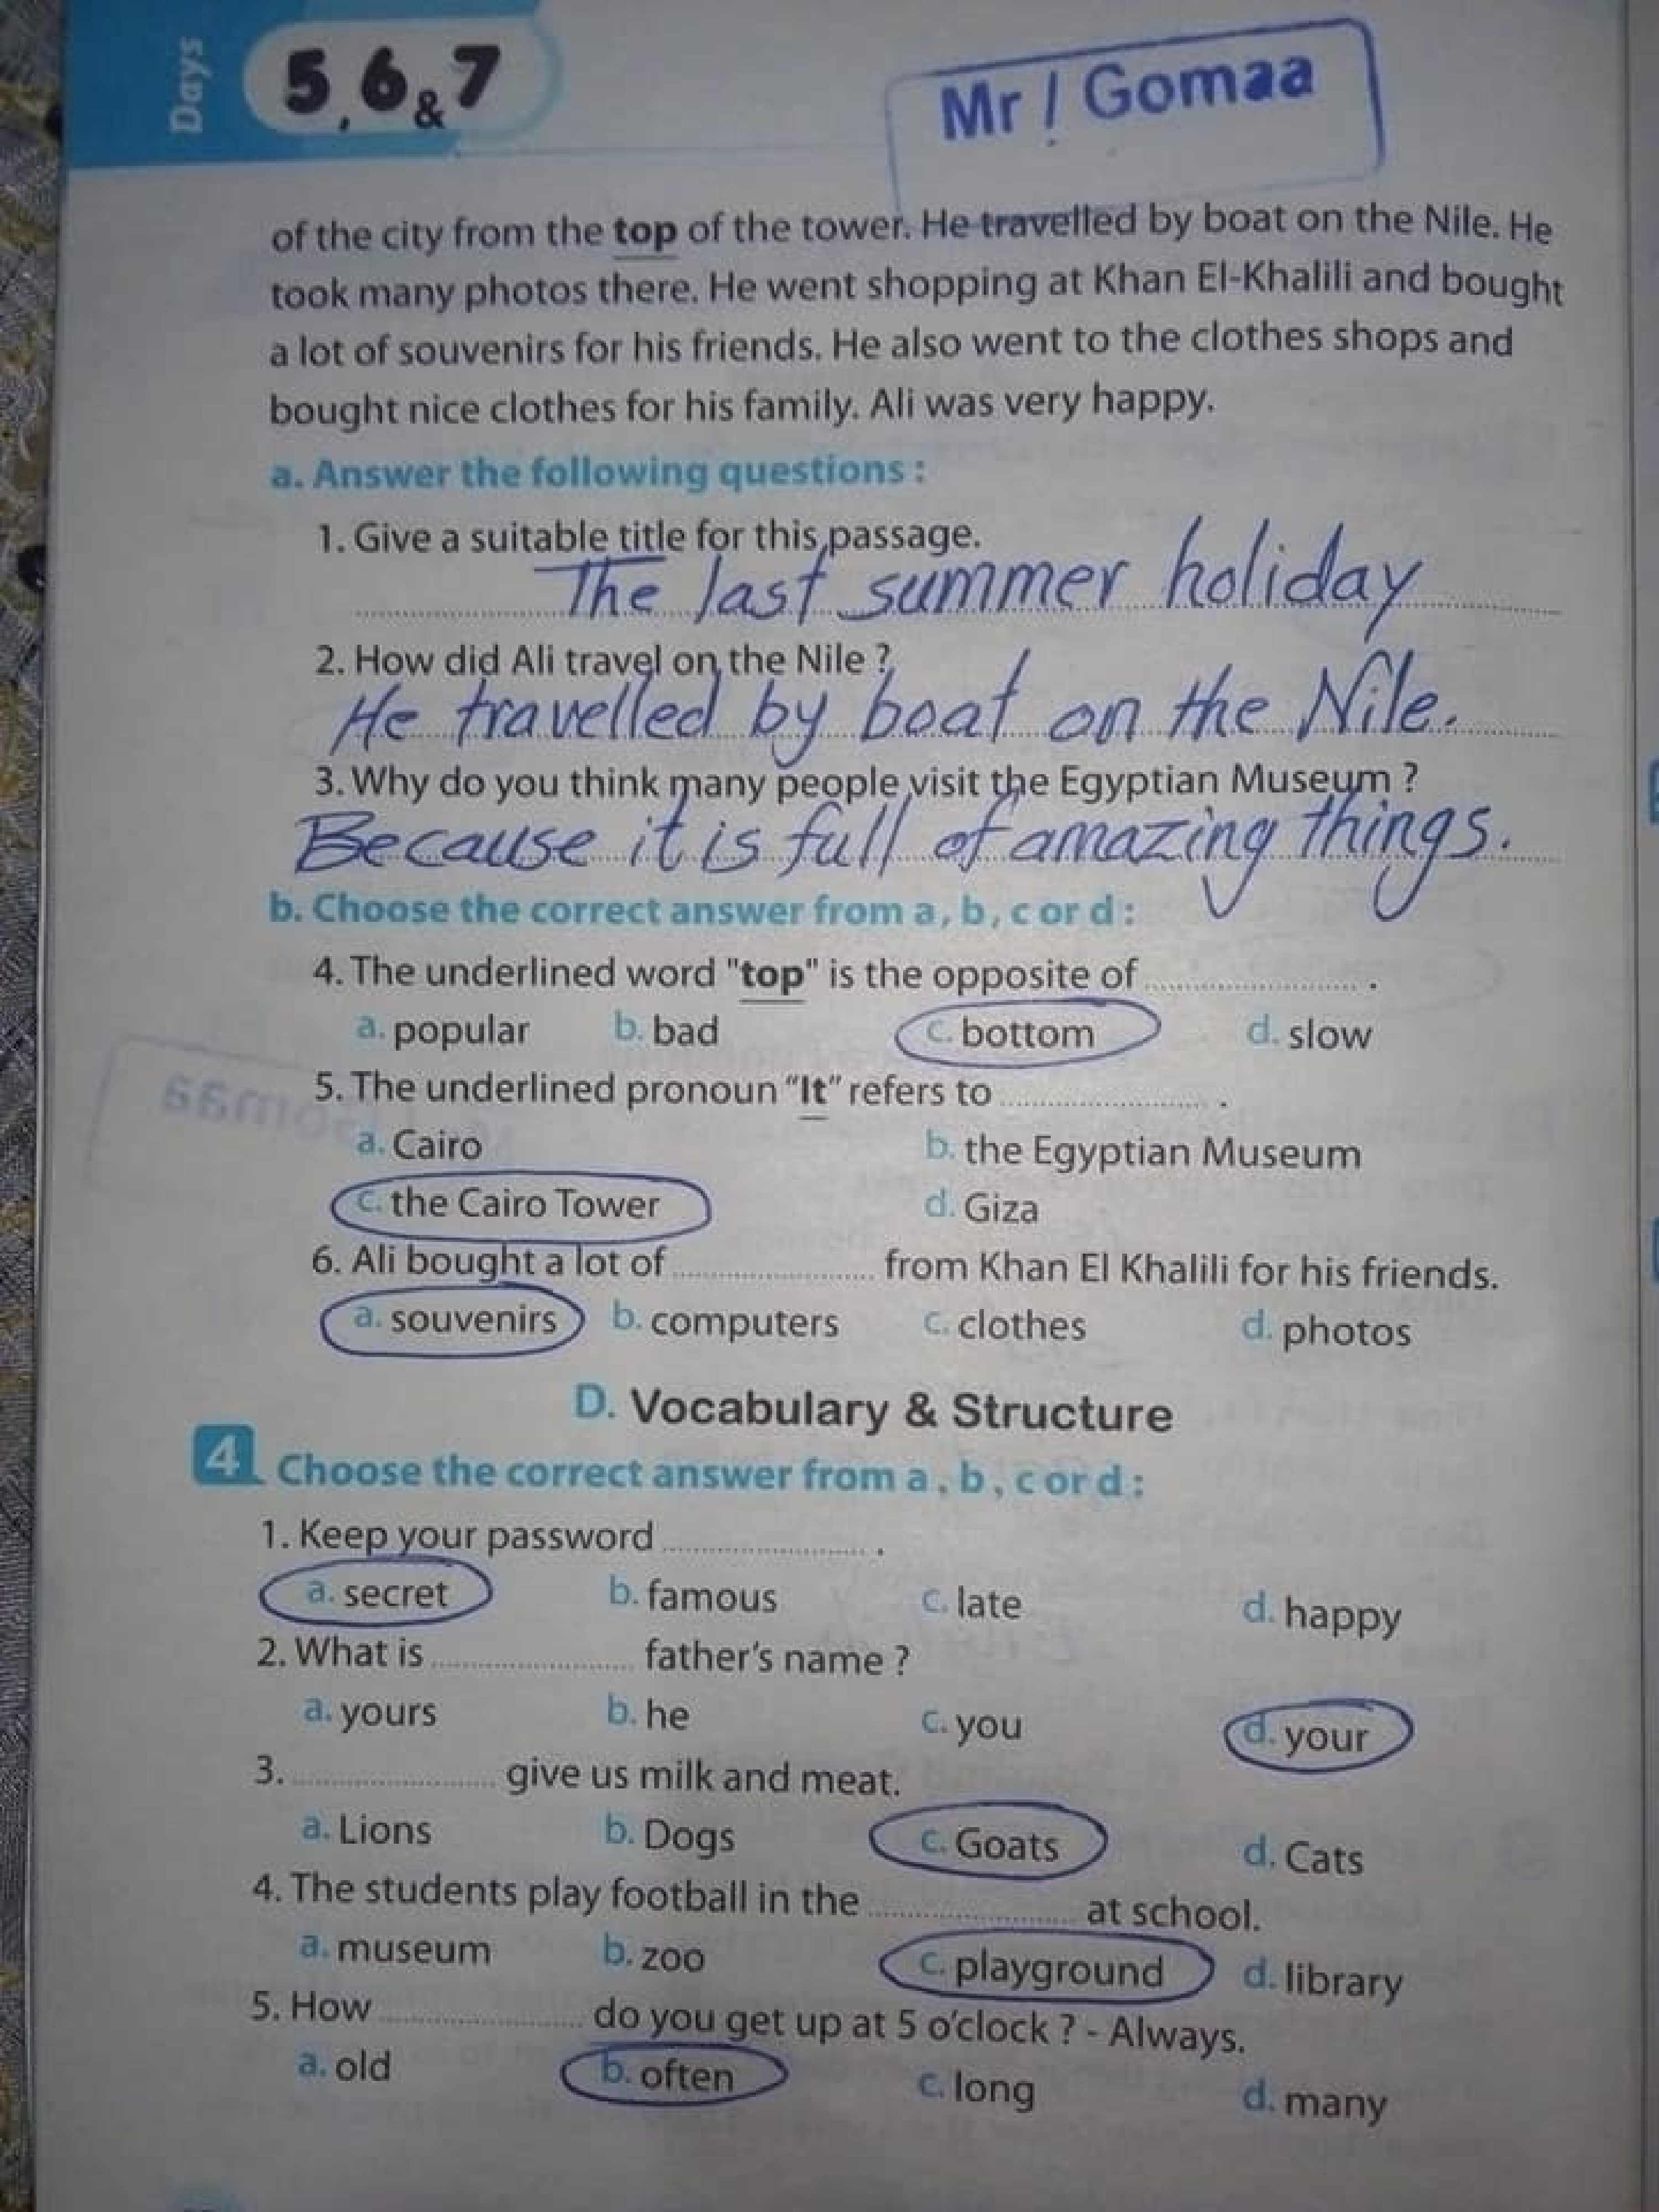 Days 5, 6 & 7
Mr / Gomaa
of the city from the top of the tower. He travelled by boat on the Nile. He
took many photos there. He went shopping at Khan El-Khalili and bought
a lot of souvenirs for his friends. He also went to the clothes shops and
bought nice clothes for his family. Ali was very happy.
a. Answer the following questions :
1. Give a suitable title for this passage.
The last summer holiday
2. How did Ali travel on the Nile ?
He travelled by boat on the Nile.
3. Why do you think many people visit the Egyptian Museum ?
Because it is full of amazing things.
b. Choose the correct answer from a, b, c or d :
4. The underlined word "top" is the opposite of .................... .
a. popular b. bad c. bottom d. slow
5. The underlined pronoun “It” refers to .................... .
a. Cairo b. the Egyptian Museum
c. the Cairo Tower d. Giza
6. Ali bought a lot of .................... from Khan El Khalili for his friends.
a. souvenirs b. computers c. clothes d. photos
D. Vocabulary & Structure
4 Choose the correct answer from a, b, c or d :
1. Keep your password .................... .
a. secret b. famous c. late d. happy
2. What is .................... father’s name ?
a. yours b. he c. you d. your
3. .................... give us milk and meat.
a. Lions b. Dogs c. Goats d. Cats
4. The students play football in the .................... at school.
a. museum b. zoo c. playground d. library
5. How .................... do you get up at 5 o’clock ? - Always.
a. old b. often c. long d. many